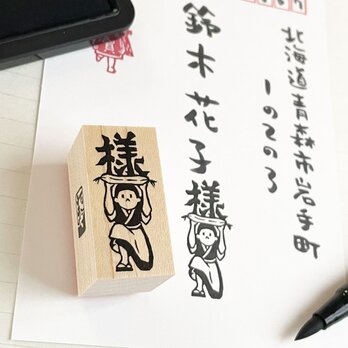 北海道青森市岩手町
一の二の三
鈴木花子様
様